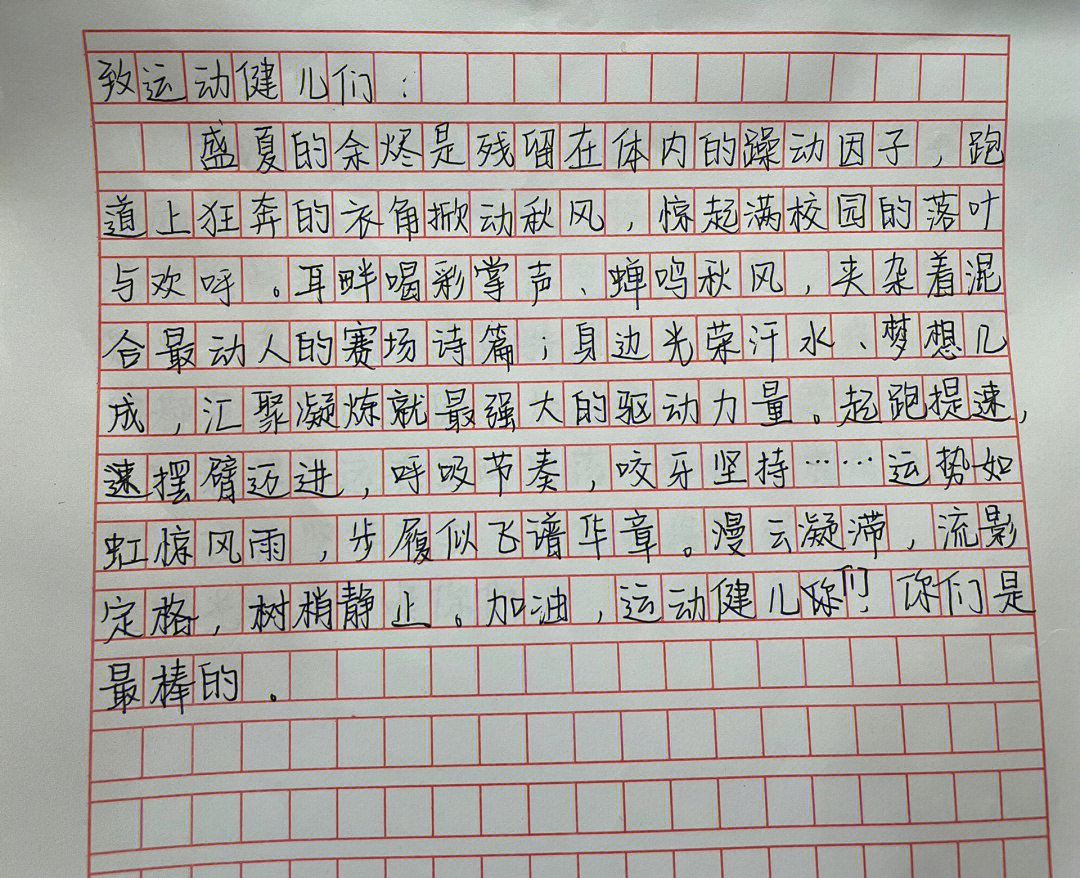 致运动健儿们：
盛夏的余烬是残留在体内的躁动因子，跑
道上狂奔的衣角掀动秋风，惊起满校园的落叶
与欢呼。耳畔喝彩掌声、蝉鸣秋风，夹杂着混
合最动人的赛场诗篇；身边光荣汗水、梦想几
成，汇聚凝炼就最强大的驱动力量。起跑提速，
速摆臂迈进，呼吸节奏，咬牙坚持……运势如
虹惊风雨，步履似飞谱华章。漫云凝滞，流影
定格，树梢静止。加油，运动健儿们！你们是
最棒的。